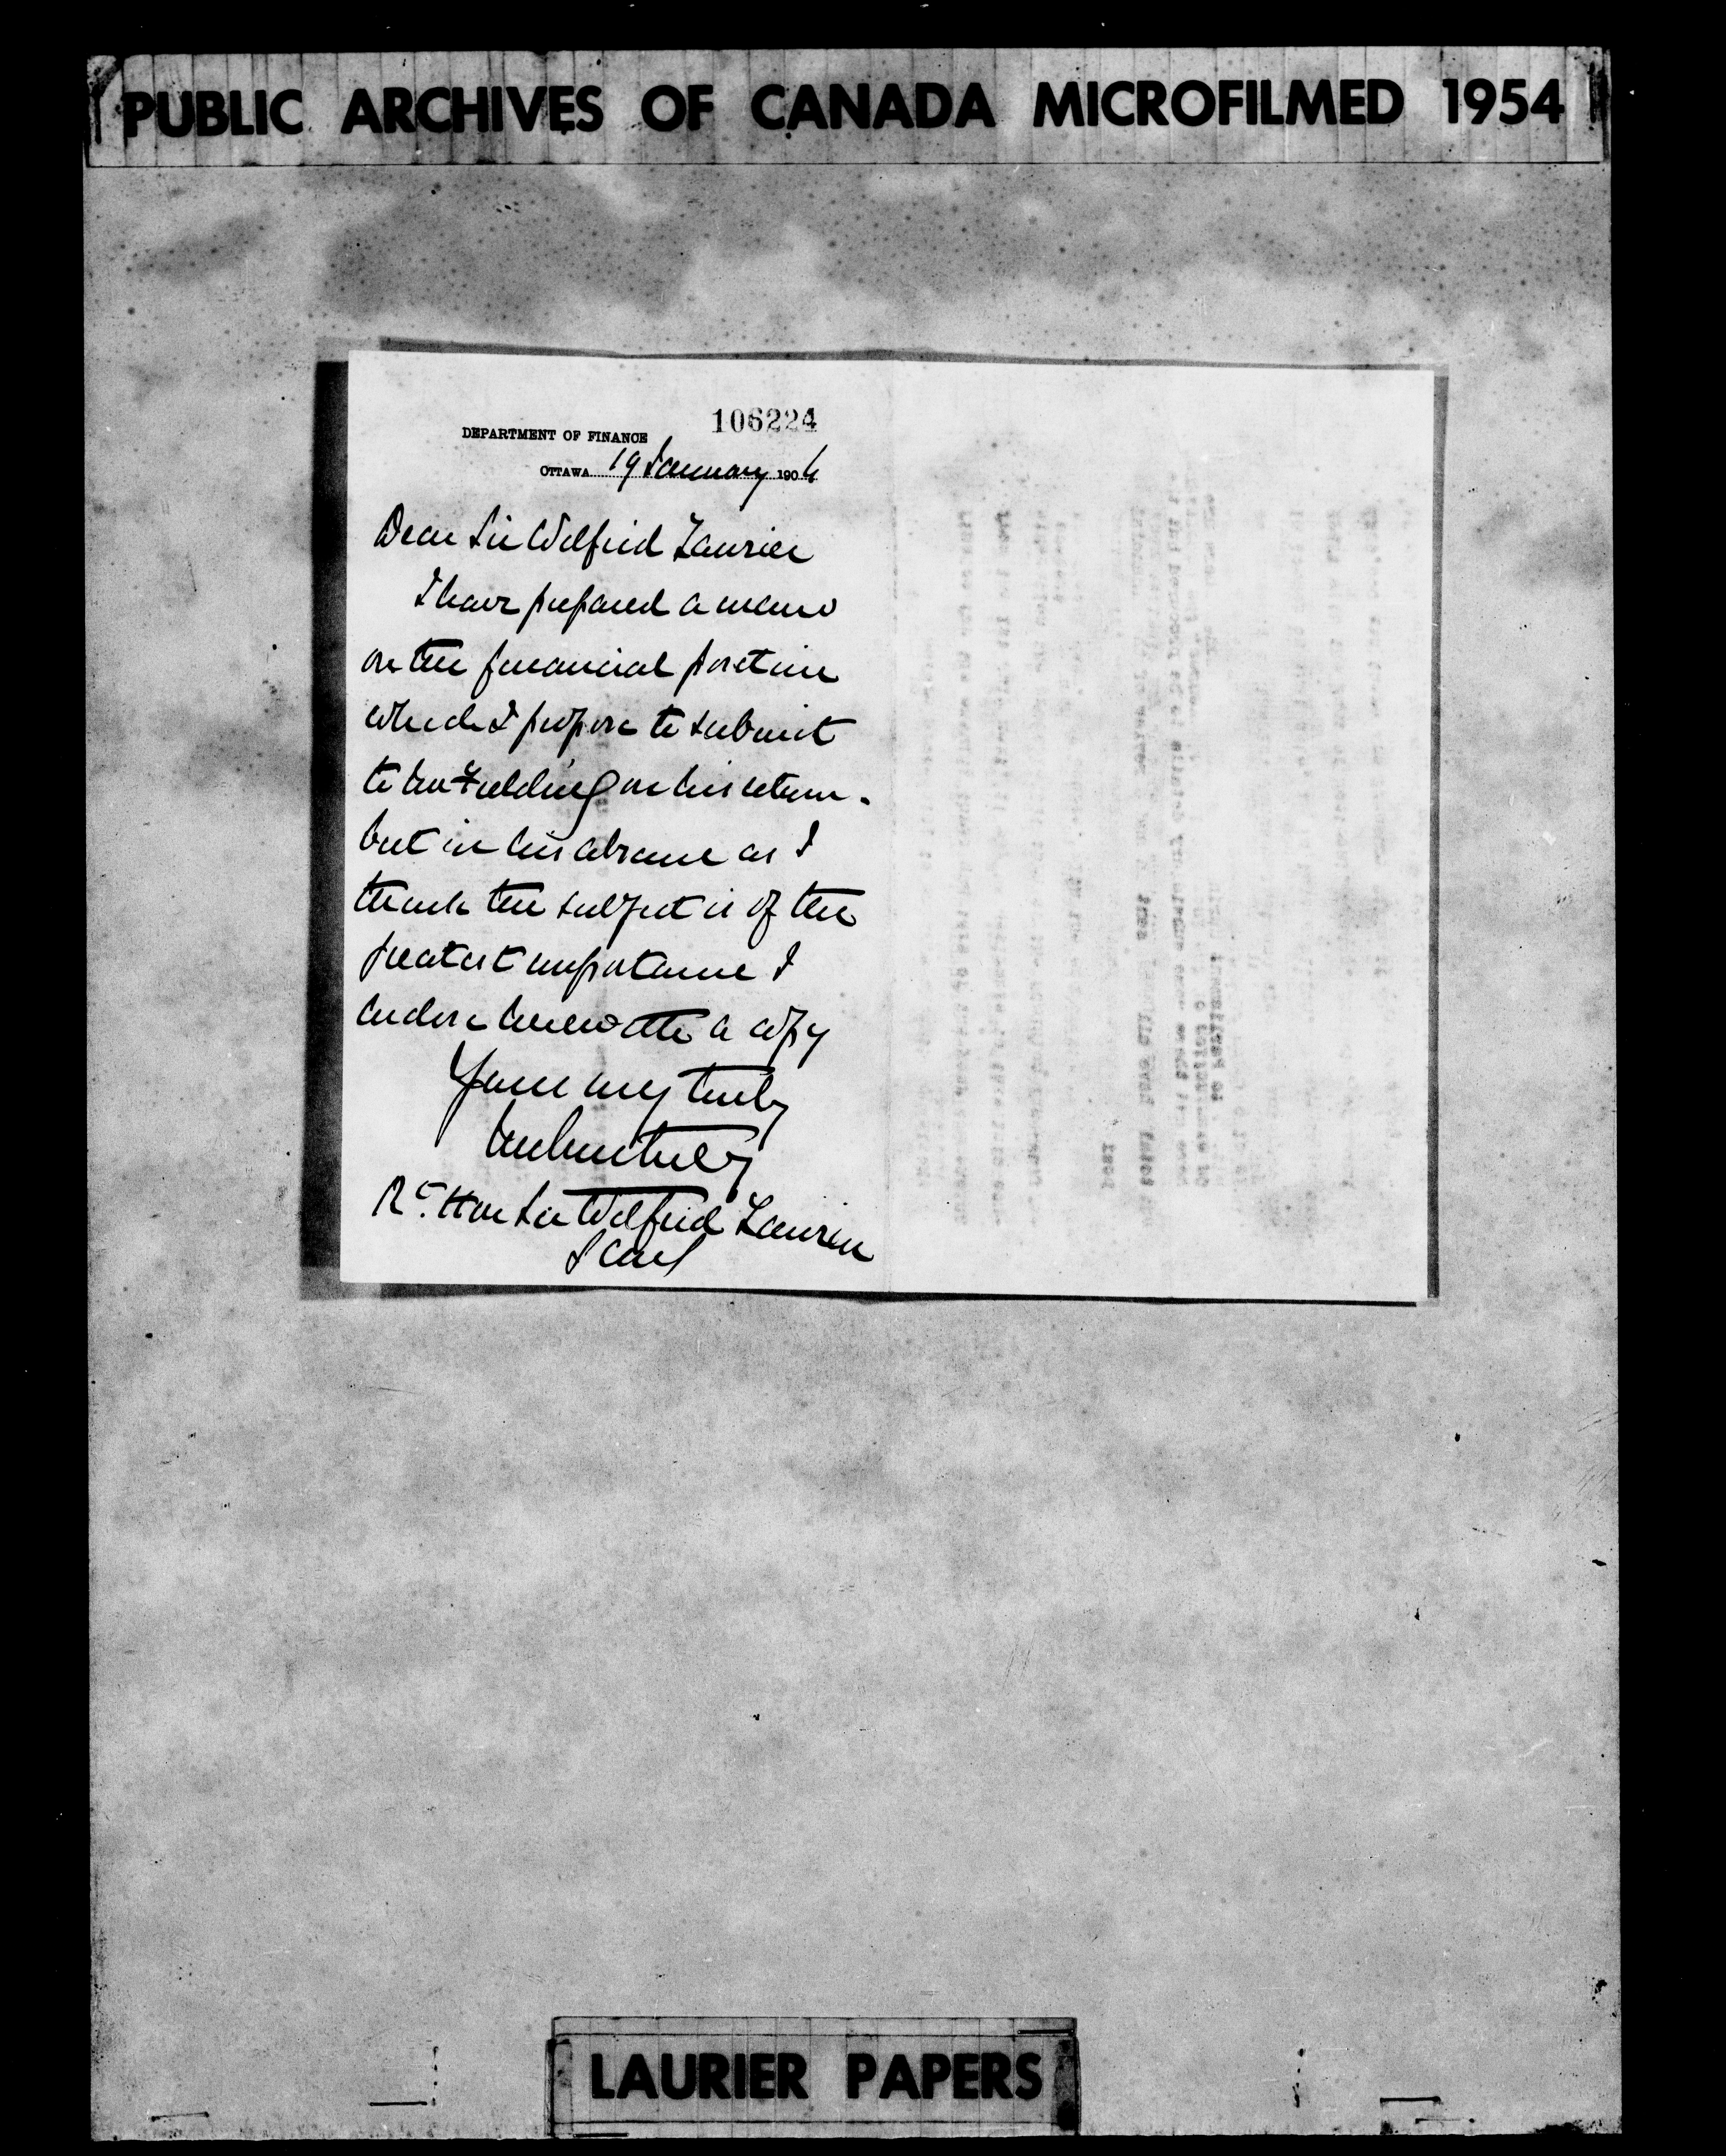 PUBLIC ARCHIVES OF CANADA MICROFILMED 1954
106224
DEPARTMENT OF FINANCE
OTTAWA 19 January 1906
Dear Sir Wilfrid Laurier
I have prepared a memo
on the financial position
which I propose to submit
to Mr Fielding on his return.
but in his absence as I
think the subject is of the
greatest importance I
enclose herewith a copy
Yours very truly
Rt. Hon Sir Wilfrid Laurier
LAURIER PAPERS